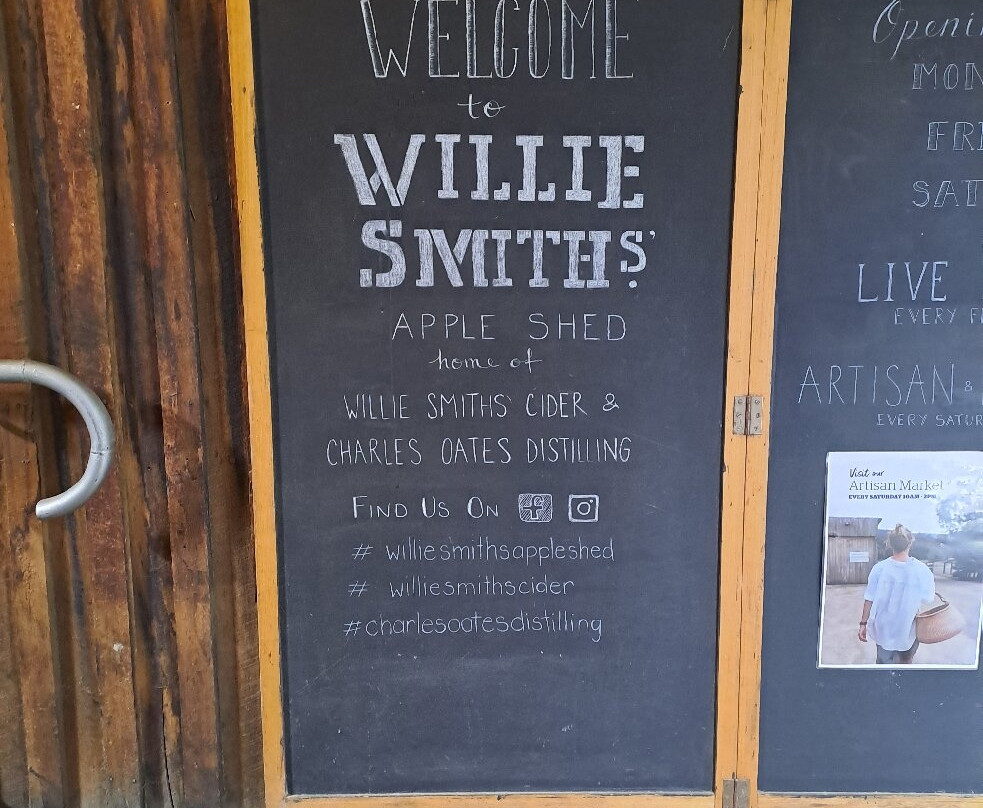 WELCOME
to
WILLIE
SMITHS'
APPLE SHED
home of
WILLIE SMITHS' CIDER &
CHARLES OATES DISTILLING
FIND US ON
# williesmithsappleshed
# williesmithscider
#charlesoatesdistilling
LIVE
EVERY
ARTISAN &
EVERY
Visit our
Artisan Market
EVERY SATURDAY 10AM - 2PM